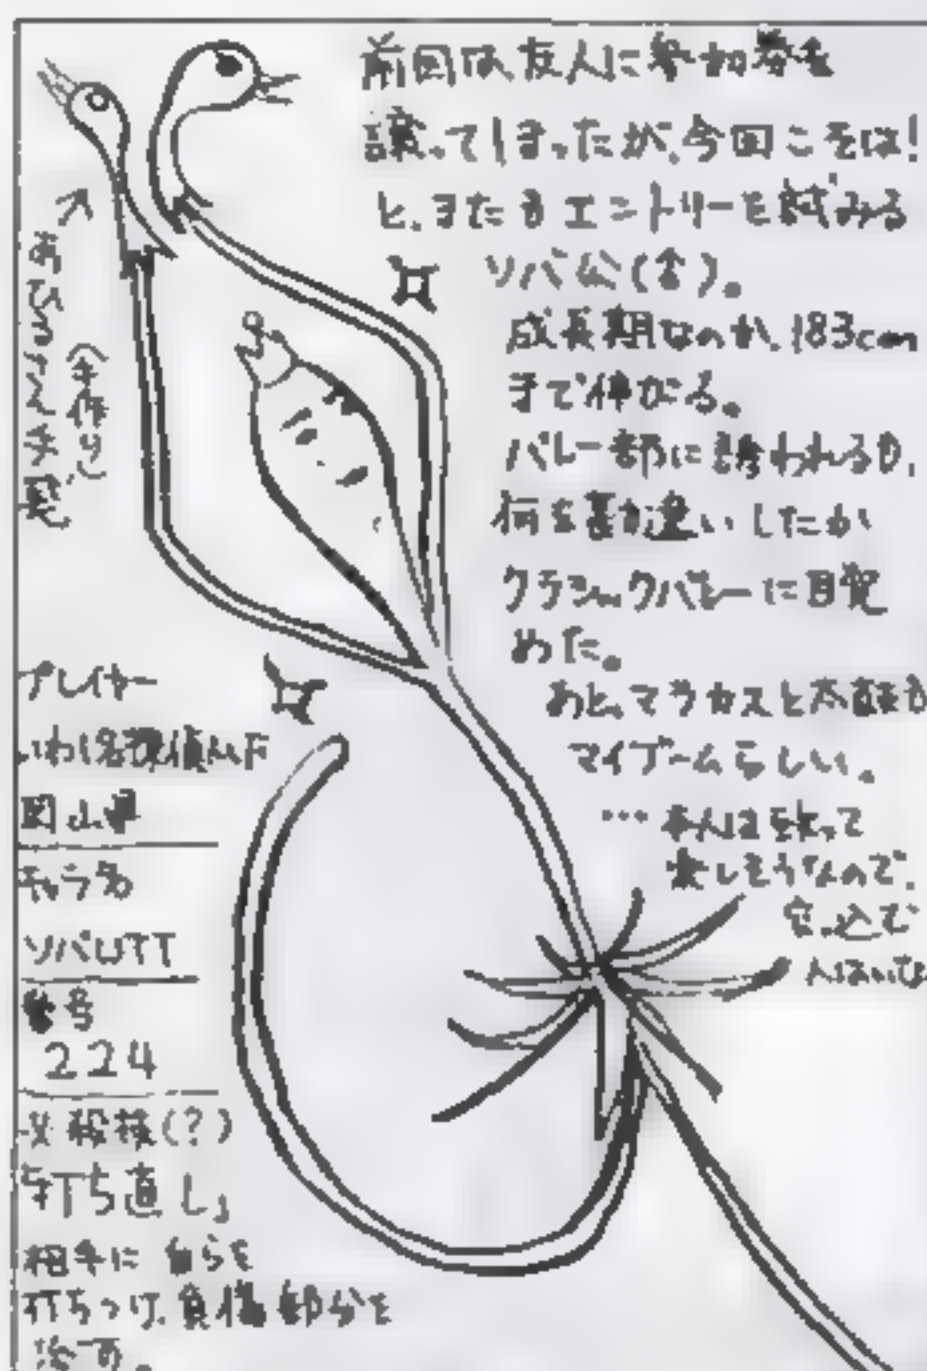 前回は友人に参加券を
譲ってしまったが、今回こそは!
と、またもエントリーを試みる
ソバ公(舎)。
成長期なのか、183cm
まで伸びる。
バレー部に誘われるも、
何を勘違いしたか
クラシックバレーに目覚
めた。
あと、マラカスと太鼓も
マイブームらしい。
…本人は至って
楽しそうなので、
(手作り)
プレイヤー
いわし名探偵
岡山県
キャラ名
ソバUTT
番号
224
必殺技(?)
「打ち直し」
相手に自らを
打ちつけ、負傷部分を
治す。